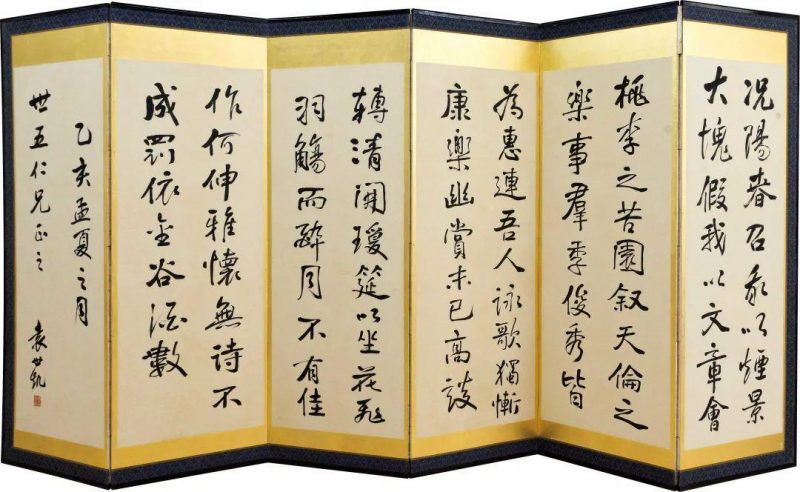 况陽春召我以煙景
大塊假我以文章會
桃李之芳園叙天倫之
樂事羣季俊秀皆
為惠連吾人詠歌獨慚
康樂幽賞未已高談
轉清開瓊筵以坐花飛
羽觴而醉月不有佳
作何伸雅懷無詩不
成罰依金谷酒數
乙亥孟夏之月
世五仁兄正之
袁世凱